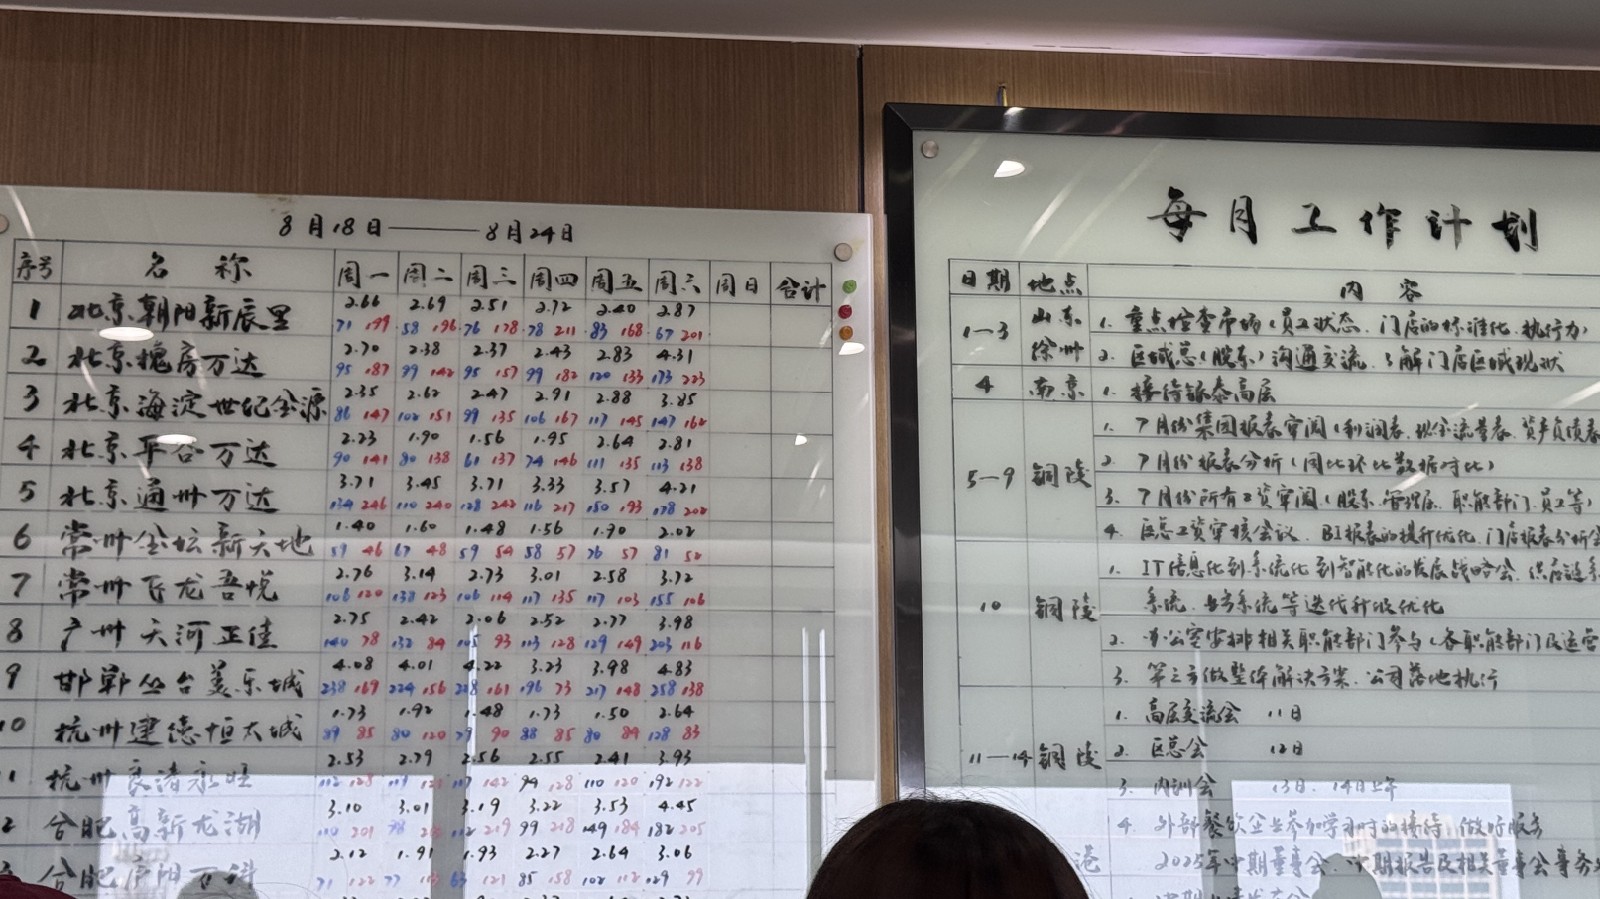 8月18日——8月24日
序号 名称 周一 周二 周三 周四 周五 周六 周日 合计
2.66 2.69 2.51 2.72 2.40 2.87
1 北京朝阳新辰里
71 199 58 196 76 178 78 211 83 168 67 201
2.70 2.38 2.37 2.43 2.83 4.31
2 北京槐房万达
95 187 99 142 95 157 99 182 120 133 173 223
2.35 2.62 2.47 2.91 2.88 3.85
3 北京海淀世纪金源
86 147 102 151 99 135 106 167 117 145 147 162
2.23 1.90 1.56 1.95 2.64 2.81
4 北京平谷万达
90 141 80 138 61 137 74 146 111 135 113 138
3.71 3.45 3.71 3.33 3.57 4.21
5 北京通州万达
134 246 110 240 128 242 116 217 150 193 178 202
1.40 1.60 1.48 1.56 1.90 2.02
6 常州金坛新天地
59 46 67 48 59 54 58 57 76 57 81 52
2.76 3.14 2.73 3.01 2.58 3.72
7 常州飞龙吾悦
106 120 138 123 106 114 117 135 117 103 155 106
2.75 2.42 2.06 2.52 2.77 3.98
8 广州天河正佳
140 78 132 84 105 93 113 128 129 149 203 116
4.08 4.01 4.22 3.23 3.98 4.83
9 邯郸丛台美乐城
238 169 224 156 228 161 196 73 217 148 258 138
1.73 1.92 1.48 1.73 1.50 2.64
10 杭州建德恒太城
89 85 80 120 79 90 88 85 80 84 128 83
2.53 2.79 2.56 2.55 2.41 3.93
杭州良渚永旺
112 128 117 142 94 128 110 120 192 122
3.10 3.01 3.19 3.22 3.53 4.45
合肥高新龙湖
110 201 112 219 99 218 149 184 182 205
2.12 1.91 1.93 2.27 2.64 3.06
合肥庐阳万科
71 122 77 63 121 85 158 102 112 129 99
每月工作计划
日期 地点 内容
1—3 山东 徐州
1. 重点检查市场(员工状态、门店的标准化、执行力)
2. 区域总(股东)沟通交流、了解门店区域现状
4 南京 1. 接待银泰高层
5—9 铜陵
1. 7月份集团报表审阅(利润表、现金流量表、资产负债表
2. 7月份报表分析(同比环比数据对比)
3. 7月份所有工资审阅(股东、管理层、职能部门、员工等)
4. 区总工资审核会议、BI报表的提升优化、门店报表分析会
10 铜陵
1. IT信息化到系统化到智能化的发展战略会、供应链系
系统、 系统等迭代升级优化
2. 办公室安排相关职能部门参与(各职能部门及运营
3. 第三方做整体解决方案、公司落地执行
11—14 铜陵
1. 高层交流会 11日
2. 区总会 12日
3. 内训会 13日、14日上午
4. 外部餐饮企业参加学习时的接待、做好服务
港 2025年中期董事会、中期报告及相关董事会事务